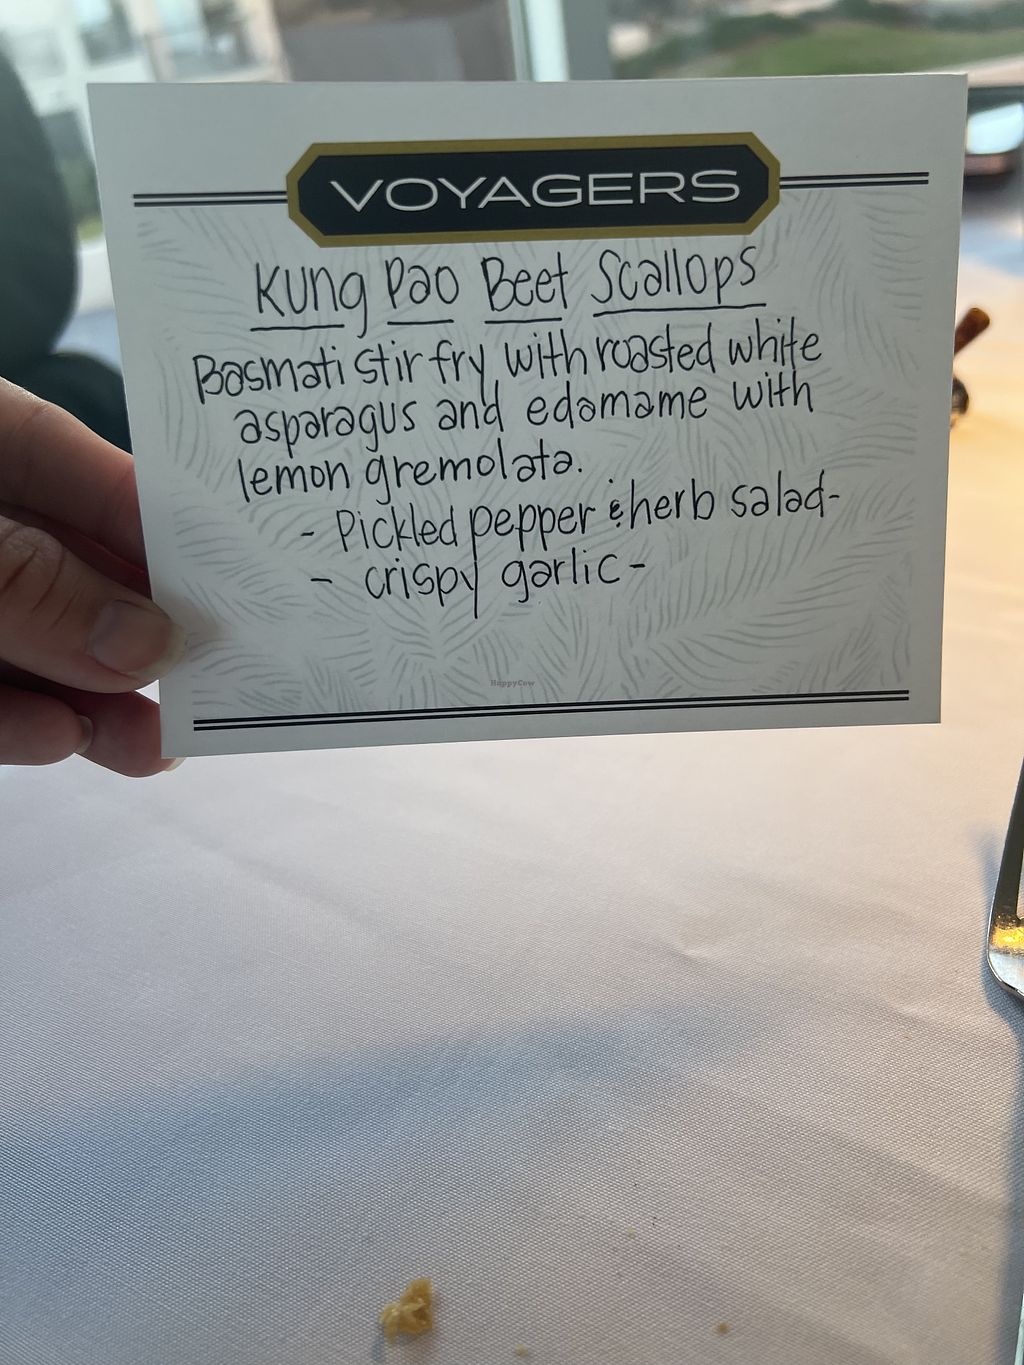 VOYAGERS
Kung Pao Beet Scallops
Basmati stir fry with roasted white
asparagus and edamame with
lemon gremolata.
- Pickled pepper & herb salad-
- crispy garlic-
HappyCow